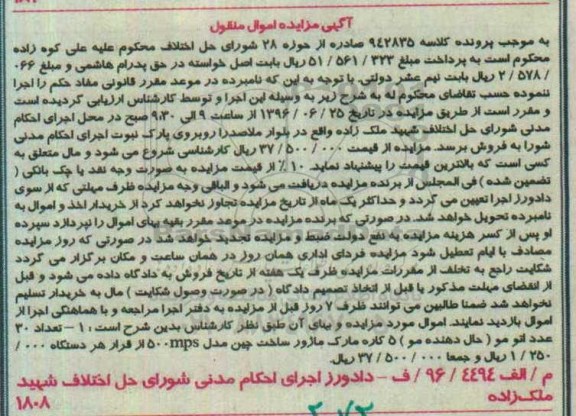 آگهی مزایده اموال منقول
به موجب پرونده کلاسه ۹۴۲۸۳۵ صادره از حوزه ۲۸ شورای حل اختلاف محکوم علیه علی کوه زاده
محکوم است به پرداخت مبلغ ۳۲۳ / ۵۶۱ / ۵۱ ریال بابت اصل خواسته در حق پدرام هاشمی و مبلغ ۰۶۶
/ ۵۷۸ / ۲ ریال بابت نیم عشر دولتی. با توجه به این که نامبرده در موعد مقرر قانونی مفاد حکم را اجرا
ننموده حسب تقاضای محکوم له به شرح زیر به وسیله این اجرا و توسط کارشناس ارزیابی گردیده است
و مقرر است از طریق مزایده در تاریخ ۲۵ / ۰۶ / ۱۳۹۶ از ساعت ۹ الی ۹:۳۰ صبح در محل اجرای احکام
مدنی شورای حل اختلاف شهید ملک زاده واقع در بلوار ملاصدرا روبروی پارک نبوت اجرای احکام مدنی
شورا به فروش برسد. مزایده از قیمت ۰۰۰ / ۵۰۰ / ۳۷ ریال کارشناسی شروع می شود و مال متعلق به
کسی است که بالاترین قیمت را پیشنهاد نماید. ۱۰٪ از قیمت مزایده به صورت وجه نقد یا چک بانکی (
تضمین شده ) فی المجلس از برنده مزایده دریافت می شود و الباقی وجه مزایده ظرف مهلتی که از سوی
دادورز اجرا تعیین می گردد و حداکثر یک ماه از تاریخ مزایده تجاوز نخواهد کرد از خریدار اخذ و اموال به
نامبرده تحویل خواهد شد. در صورتی که برنده مزایده در موعد مقرر بقیه بهای اموال را نپردازد سپرده
او پس از کسر هزینه مزایده به نفع دولت ضبط و مزایده تجدید خواهد شد. در صورتی که روز مزایده
مصادف با ایام تعطیل شود مزایده فردای اداری همان روز در همان ساعت و مکان برگزار می گردد
شکایت راجع به تخلف از مقررات مزایده ظرف یک هفته از تاریخ فروش به دادگاه داده می شود و قبل
از انقضای مهلت مذکور یا قبل از اتخاذ تصمیم دادگاه ( در صورت وصول شکایت ) مال به خریدار تسلیم
نخواهد شد ضمنا طالبین می توانند ظرف ۷ روز قبل از مزایده به دفتر اجرا مراجعه و با هماهنگی اجرا از
اموال بازدید نمایند. اموال مورد مزایده و بهای آن طبق نظر کارشناس بدین شرح است : ۱ – تعداد ۳۰
عدد اتو مو ( حال دهنده مو ) ۵ کاره مارک مازور ساخت چین مدل mps۵۰۰ از قرار هر دستگاه ۰۰۰ /
۲۵۰ / ۱ ریال و جمعا ۰۰۰ / ۵۰۰ / ۳۷ ریال.
م / الف ۴۴۹۴ / ۹۶ / ف – دادورز اجرای احکام مدنی شورای حل اختلاف شهید
ملک‌زاده
۱۸۰۸